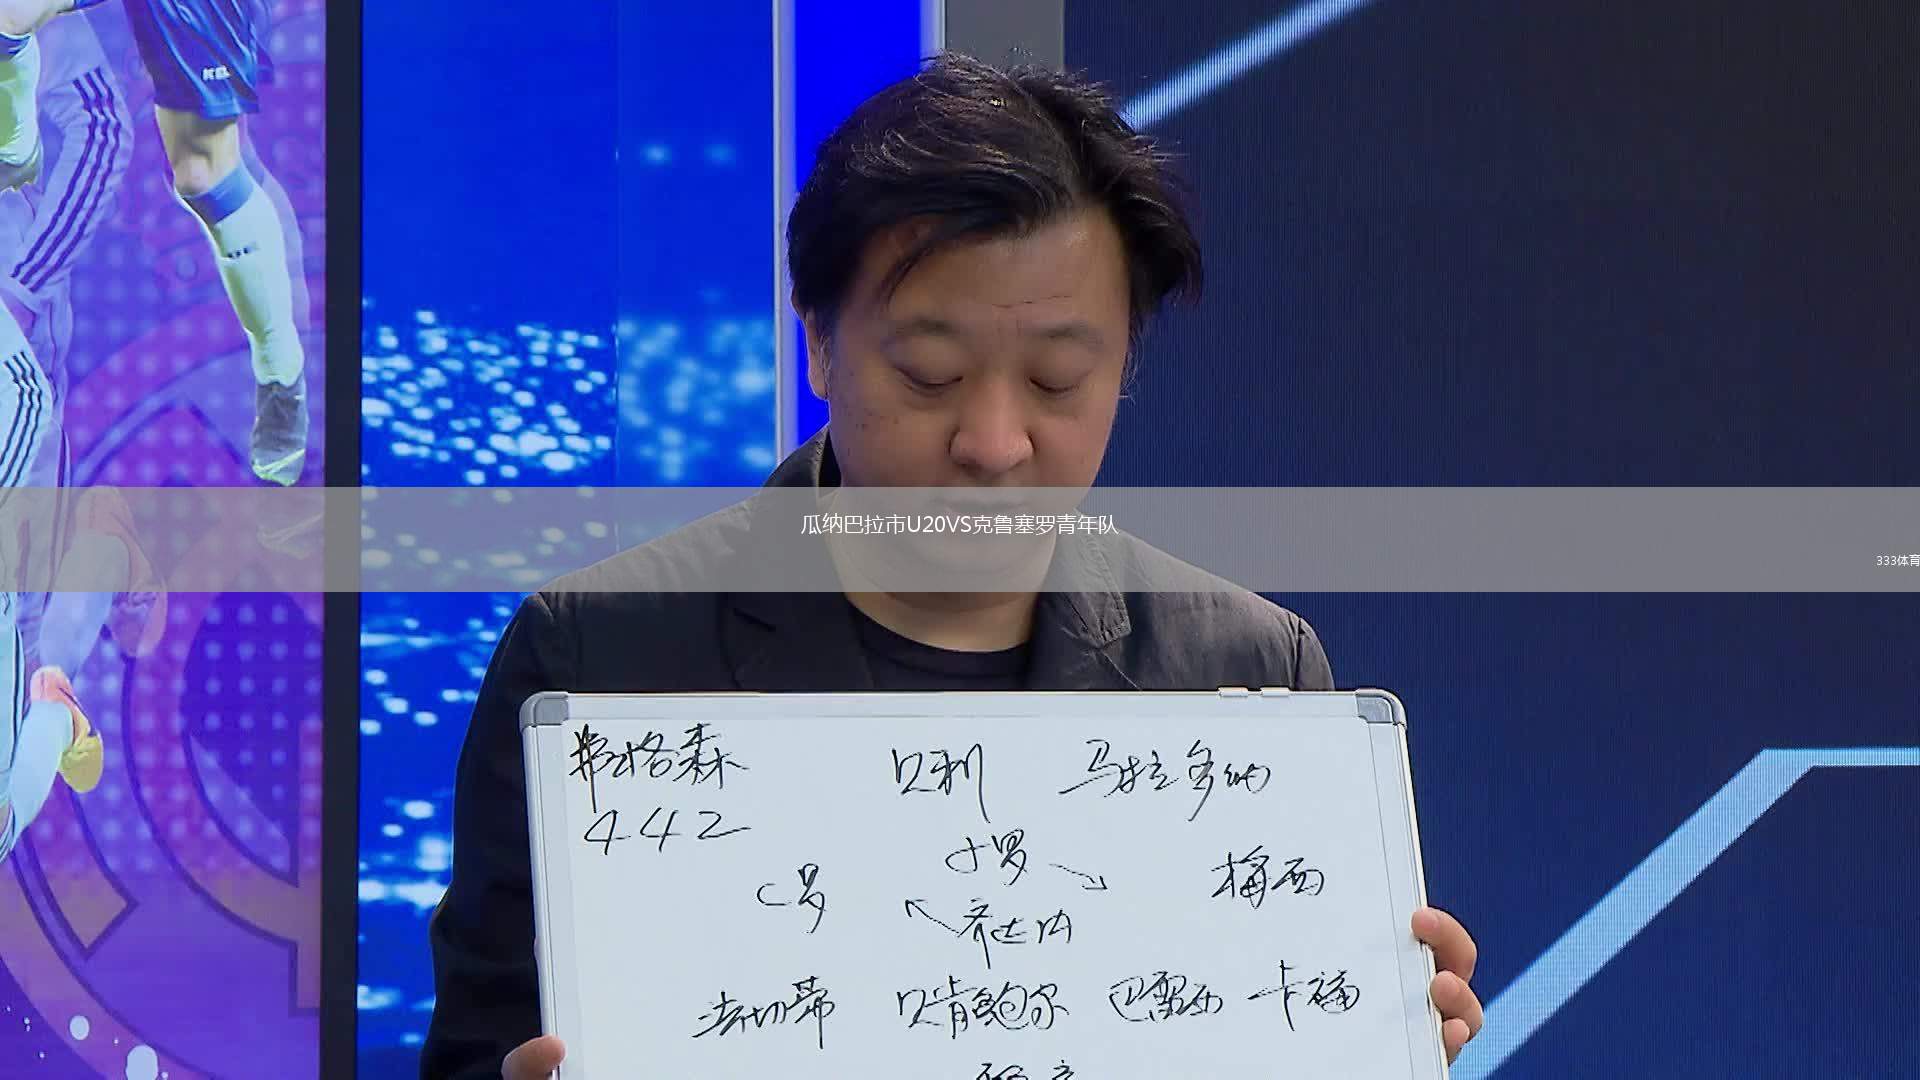 瓜纳巴拉市U20VS克鲁塞罗青年队
333体育
弗格森 贝利 马拉多纳
442
小罗
C罗 梅西
齐达内
法切蒂 贝肯鲍尔 巴雷西 卡福